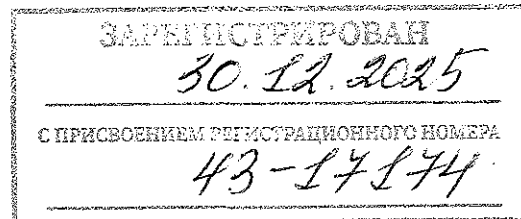 ЗАРЕГИСТРИРОВАН
30.12.2025
С ПРИСВОЕНИЕМ РЕГИСТРАЦИОННОГО НОМЕРА
43-17174